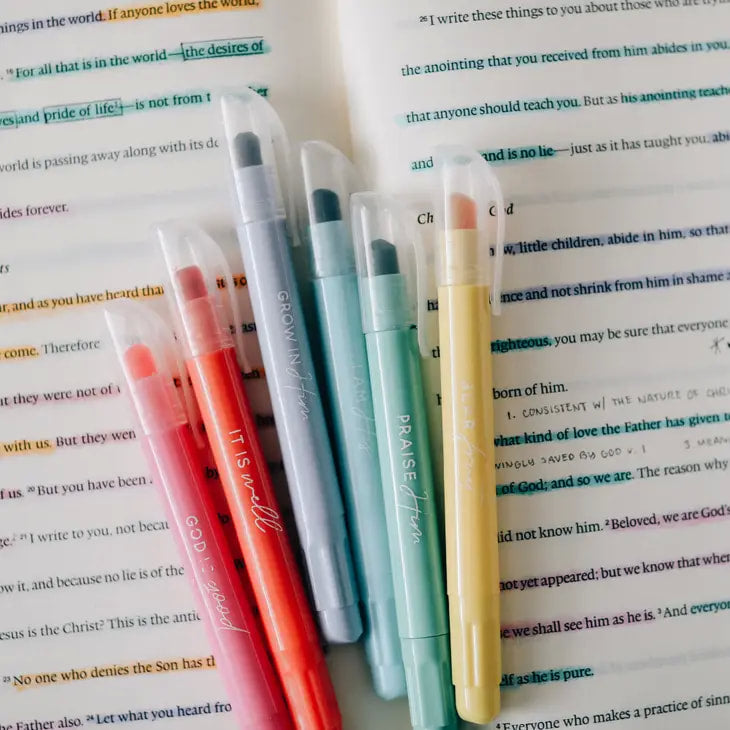 ings in the world. If anyone loves the
. ¹⁶ For all that is in the world—the desires of
es and pride of life—is not from t
world is passing away along with its de
ides forever.
ts
ur, and as you have heard tha
come. Therefore
t they were not of
with us. But they were
f us. ²⁰ But you have been
ge. ²¹ I write to you, not becau
ow it, and because no lie is of the
esus is the Christ? This is the antic
²³ No one who denies the Son has th
he Father also. ²⁴ Let what you heard fro
²⁶ I write these things to you about those who are tryin
the anointing that you received from him abides in you,
that anyone should teach you. But as his anointing teache
and is no lie—just as it has taught you, abi
Ch God
w, little children, abide in him, so that
ence and not shrink from him in shame a
righteous, you may be sure that everyone
born of him.
1. CONSISTENT W/ THE NATURE OF CHRI
what kind of love the Father has given to
INGLY SAVED BY GOD V. 1 3. MEAN
of God; and so we are. The reason why
did not know him. ² Beloved, we are God's
not yet appeared; but we know that when
e we shall see him as he is. ³ And everyon
lf as he is pure.
⁴ Everyone who makes a practice of sinn
GOD IS good
IT IS well
GROW IN Him
I AM His
PRAISE Him